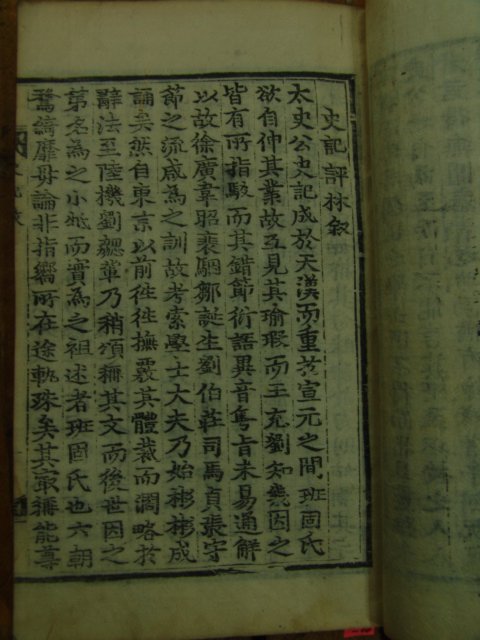 史記評林叙
太史公史記成於天漢而重於宣元之間班固氏
欲自伸其業故互見其瑜瑕而王充劉知幾因之
皆有所指駁而其錯節衍語異音奧旨未易通解
以故徐廣韋昭裴駰鄒誕生劉伯莊司馬貞張守
節之流咸為之訓故考索學士大夫乃始彬彬成
誦矣然自東京以前徃徃撫覈其體裁而濶略於
辭法至陸機劉勰軰乃稍頌稱其文而後世因之
第名為之小紕而實為之祖述者班固氏也六朝
騖綺靡毋論非指嚮所在途軌殊矣其最稱能摹